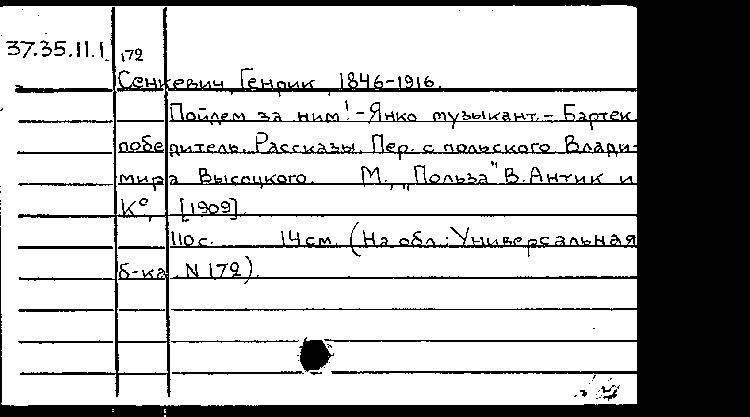 37.35.11.1 172
Сенкевич, Генрик, 1846-1916.
Пойдем за ним!-Янко музыкант.-Бартек
победитель. Рассказы. Пер. с польского Влади-
мира Высоцкого. М., „Польза" В.Антик и
К°, [1909].
110 с. 14 см. (На обл.: Универсальная
б-ка. N 172).